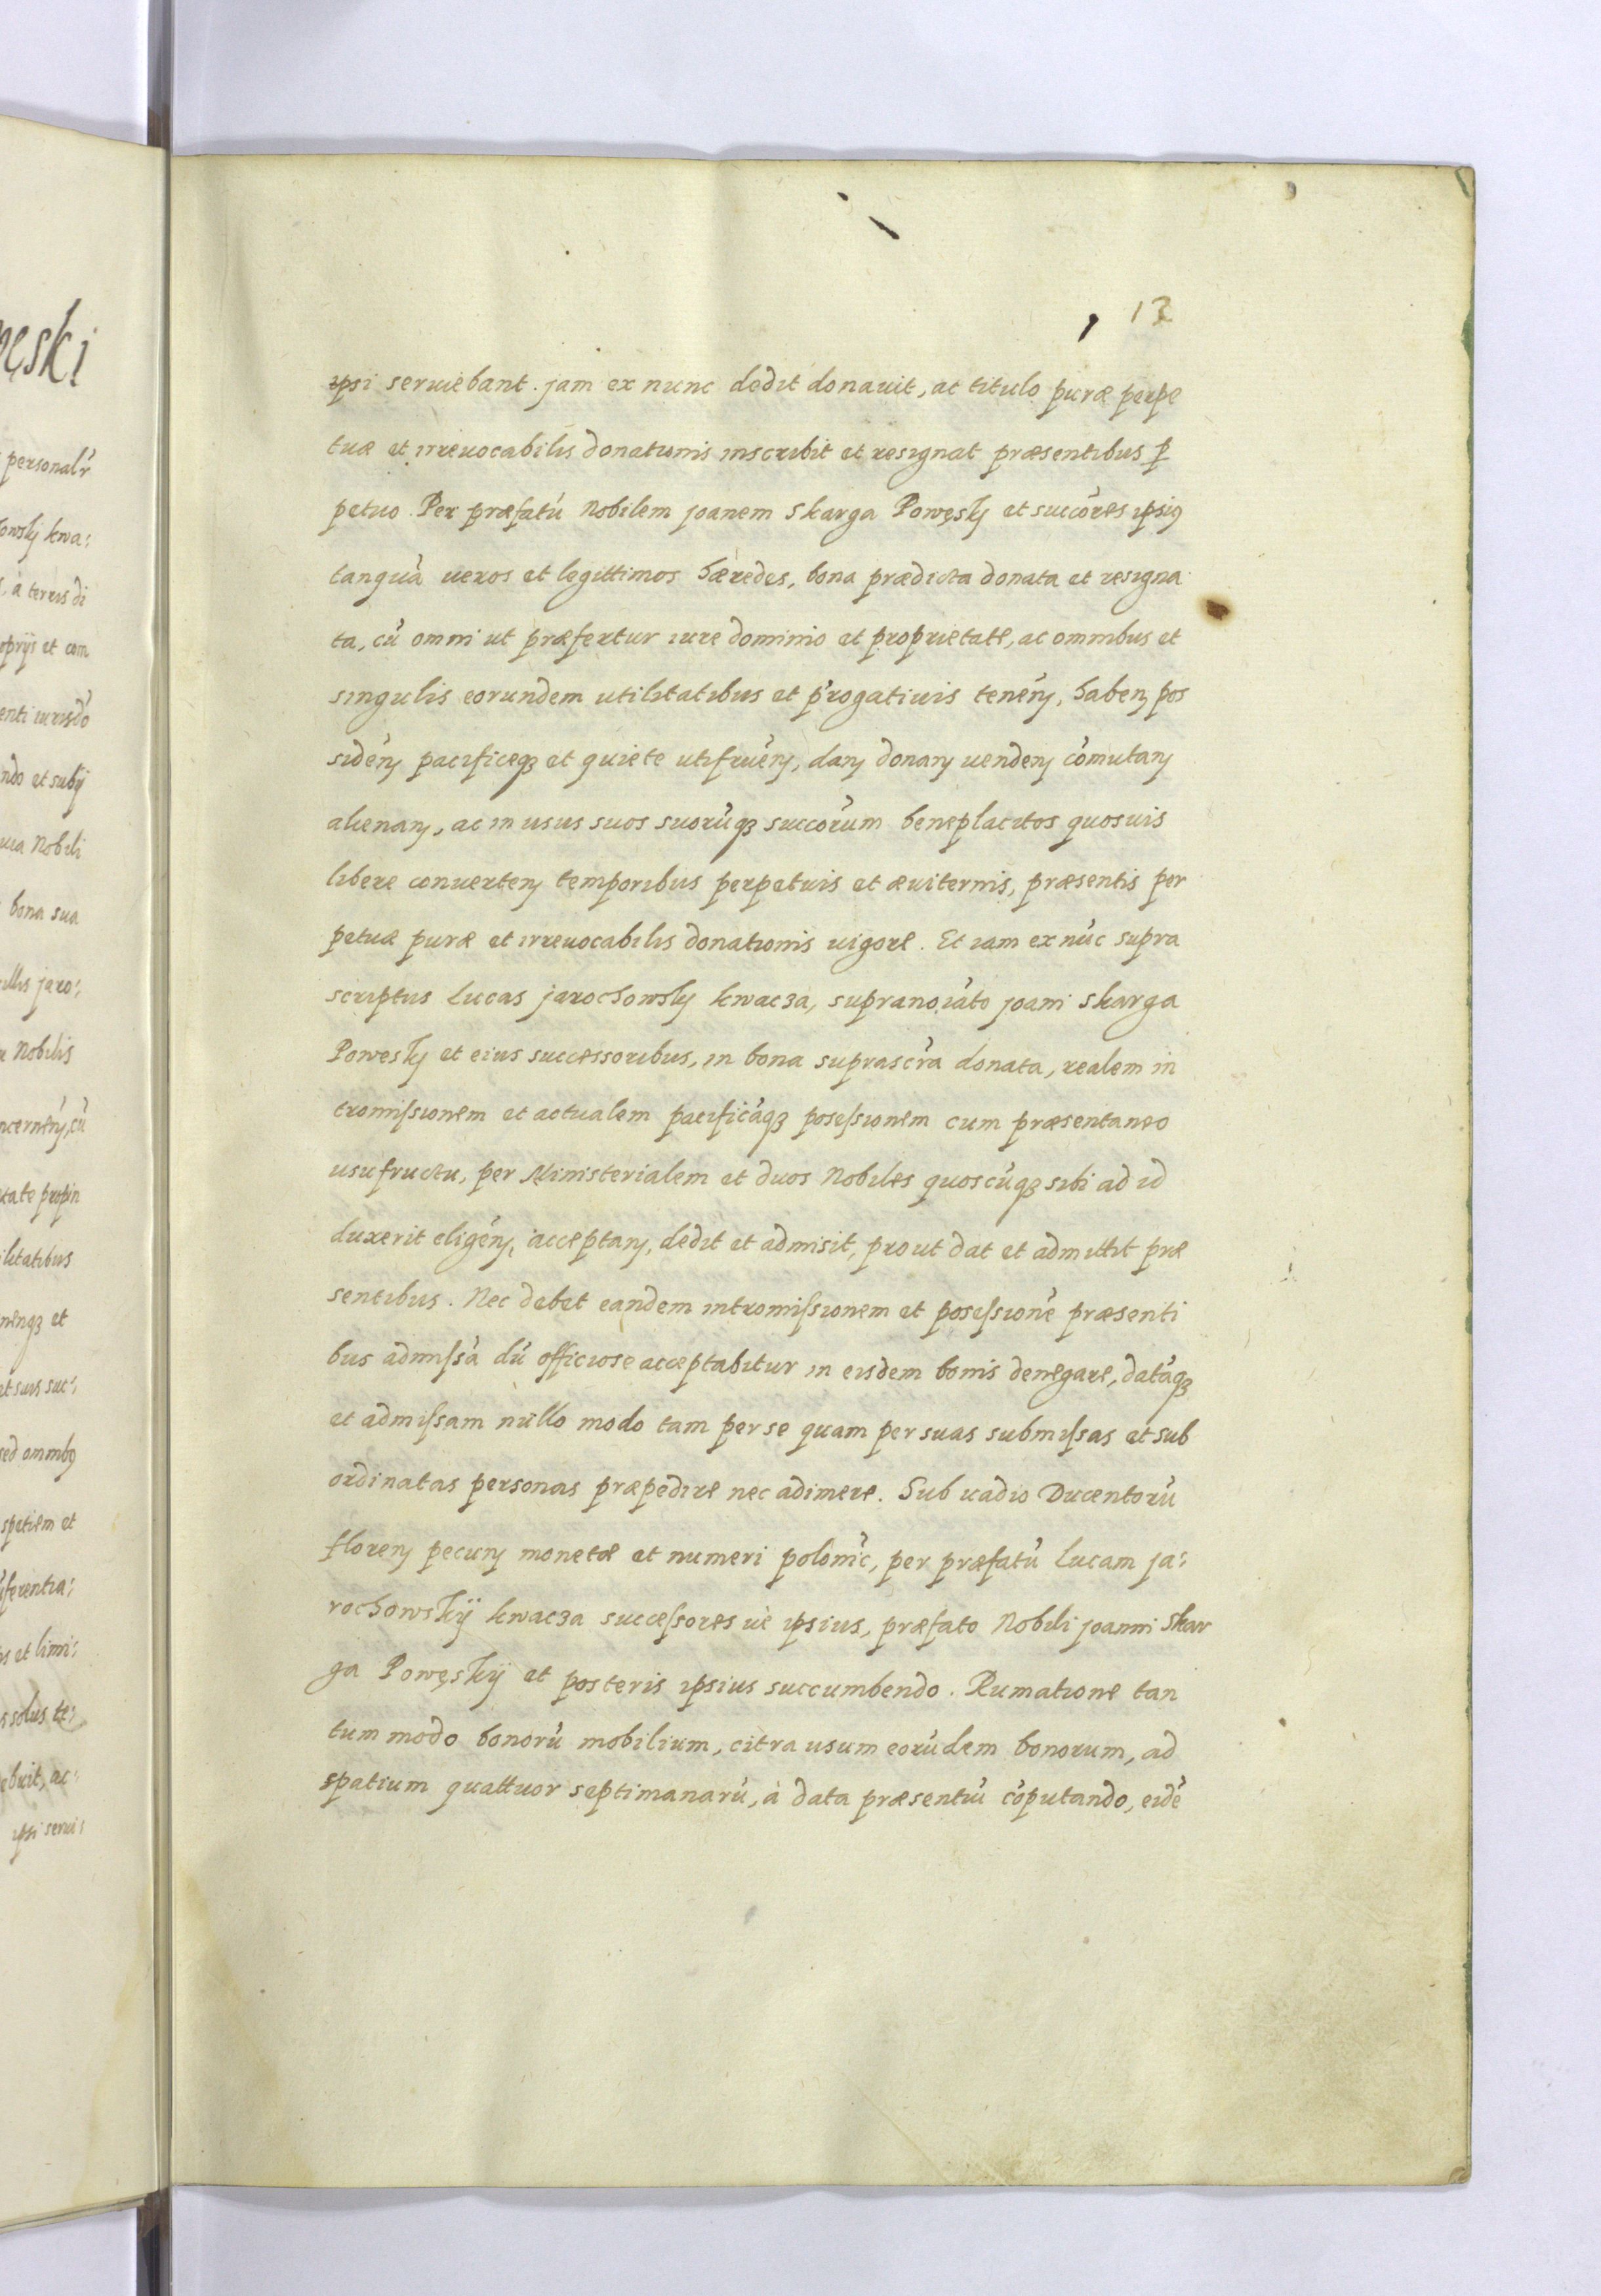 13
ipsi serviebant. jam ex nunc dedit donauit, ac titulo puræ perpe
tuæ et irreuocabilis donationis inscribit et resignat præsentibus ꝑ
petuo. Per præfatú Nobilem joanem Skarga Powęskÿ et succóres ipsiꝰ
tanquá ueros et legittimos hæredes, bona prædicta donata et resigna
ta, cú omni ut præfertur iure dominio et proprietate, ac omnibus et
singulis eorundem utilitatibus et p̓rogatiuis tenéṇ, habenꝫ pos
sidénꝫ pacificeqꝫ et quiete utifruénꝫ, danꝫ donanꝫ uendenꝫ cómutanꝫ
alienanꝫ, ac in usus suos suorúqꝫ succórum beneplacitos quosuis
libere conuertenꝫ temporibus perpetuis et æuiternis, præsentis per
petuæ puræ et irreuocabilis donationis uigore. Et iam ex núc supra
scriptus Lucas jarochowskÿ kwacza, supranoiáto joani Skarga
Poweskÿ et eius successoribus, in bona suprascr̓a donata, realem in
tromiſsionem et actualem pacificáqꝫ poseſsionem cum præsentaneo
usufructu, per Ministerialem et duos Nobiles quoscúqꝫ sibi ad id
duxerit eligénꝫ, acceptanꝫ, dedit et admisit, prout dat et admittit præ
sentibus. Nec debet eandem intromiſsionem et poseſsioné præsenti
bus admiſsá dú officiose acceptabitur in eisdem bonis denegare, datáqꝫ
et admiſsam nullo modo tam per se quam per suas submiſsas et sub
ordinatas personas præpedire nec adimere. Sub uadio Ducentorú
florenꝫ pecunꝫ monetæ et numeri polonic̓, per præfatú Lucam ja:
rochowskÿ kwacza succeſsores ue ipsius, præfato Nobili joanni Skar
ga Powęskÿ et posteris ipsius succumbendo. Rumatione tan
tum modo bonorú mobilium, citra usum eorúdem bonorum, ad
spatium quattuor septimanarú, à data præsentiú cóputando, eidé